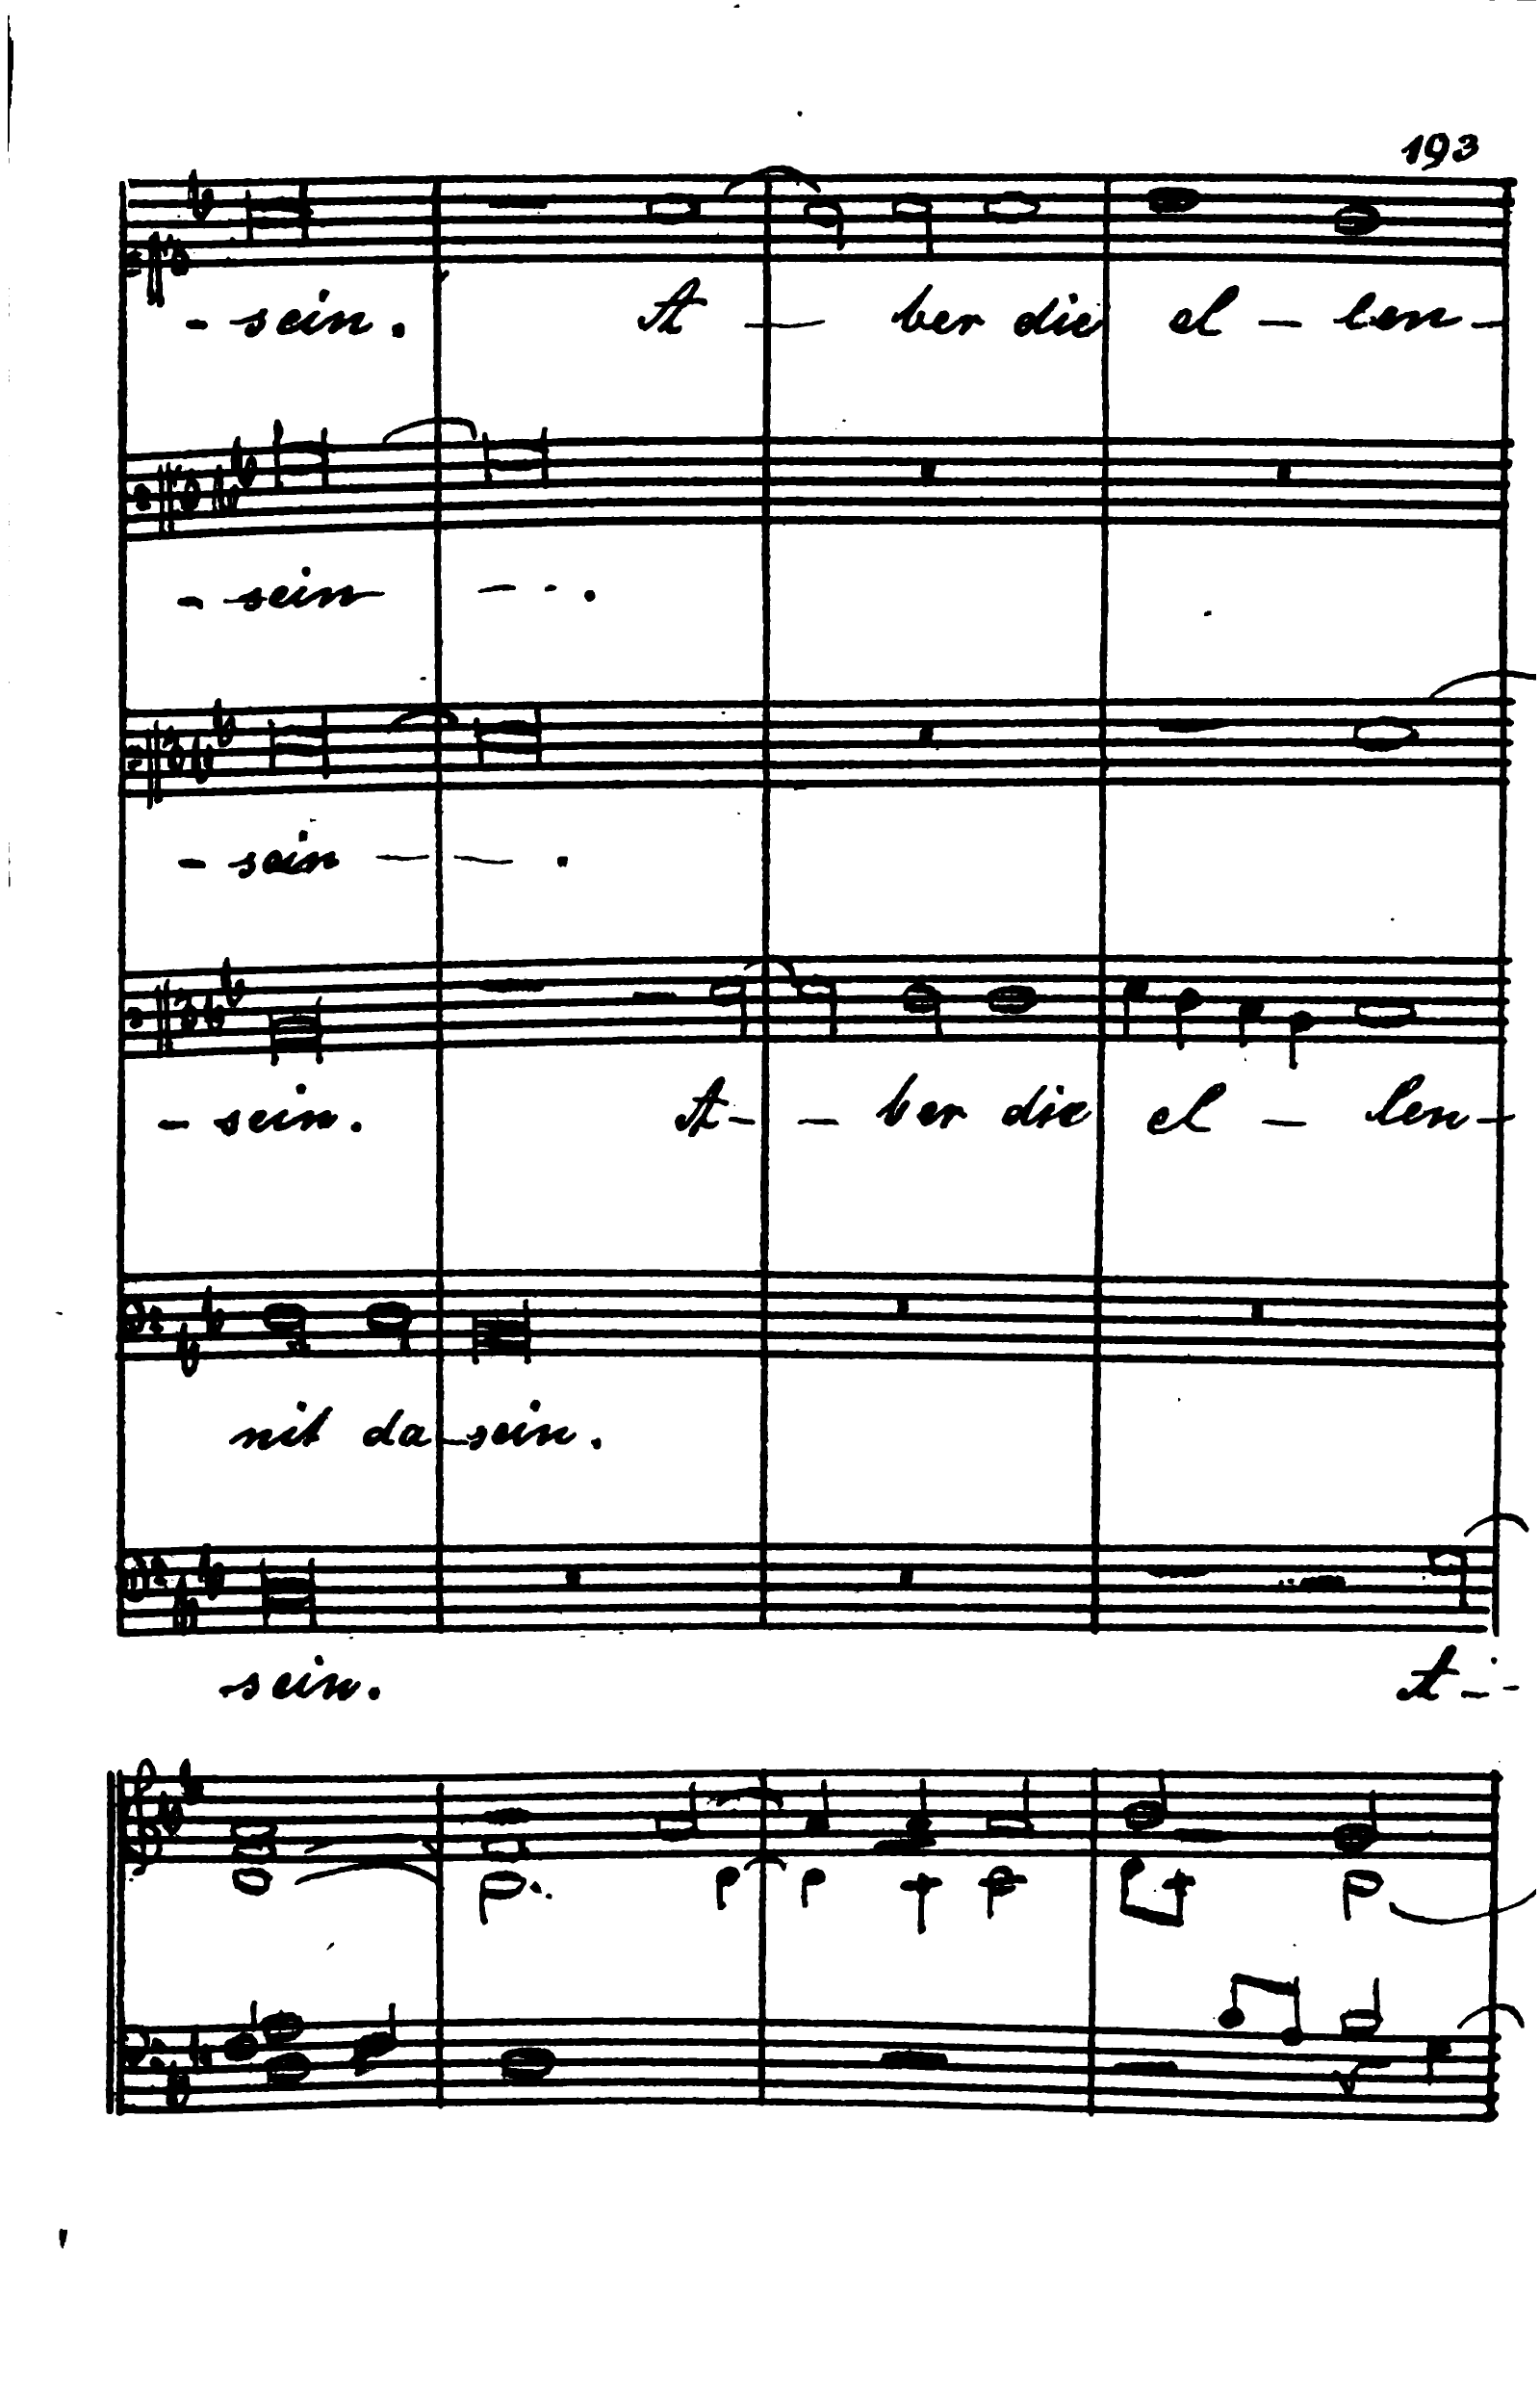 193
- sein. A - ber die el - len -
- sein - - .
- sein - - .
- sein. A - - ber die el - len -
nit da - sein.
sein. A - -